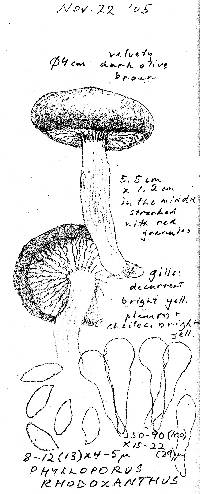 Nov. 22 '05
velvety
Ø4cm dark olive
brown
5.5cm
x 1.2cm
in the middle
streaked
with red
granules
gills:
decurrent
bright yell.
pleuro +
cheiloc. bright
yell.
50-90(110)
x 15-22
8-12(13)x4-5µ
PHYLLOPORUS
RHODOXANTHUS